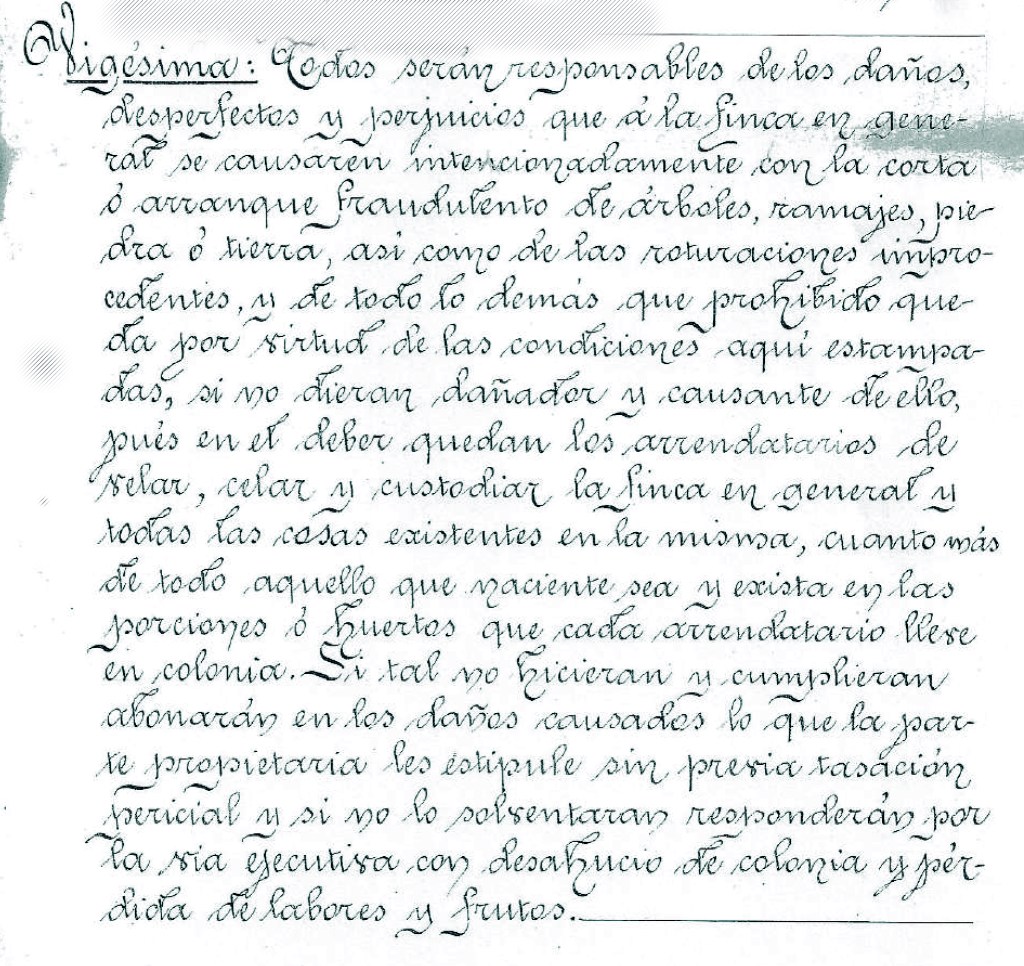 Vigésima: Todos serán responsables de los daños,
desperfectos y perjuicios que á la finca en gene-
ral se causaren intencionadamente con la corta
ó arranque fraudulento de árboles, ramajes, pie-
dra ó tierra, así como de las roturaciones impro-
cedentes, y de todo lo demás que prohibido que-
da por virtud de las condiciones aquí estampa-
das, si no dieran dañador y causante de ello,
pués en el deber quedan los arrendatarios de
velar, celar y custodiar la finca en general y
todas las cosas existentes en la misma, cuanto más
de todo aquello que naciente sea y exista en las
porciones ó huertos que cada arrendatario lleve
en colonia. Si tal no hicieran y cumplieran
abonarán en los daños causados lo que la par-
te propietaria les estipule sin previa tasación
pericial y si no lo solventaran responderán por
la via ejecutiva con desahucio de colonia y pér-
dida de labores y frutos.